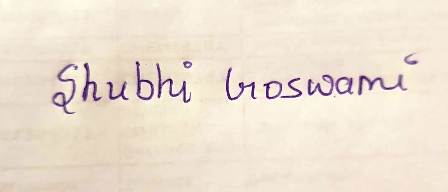 Shubhi Goswami